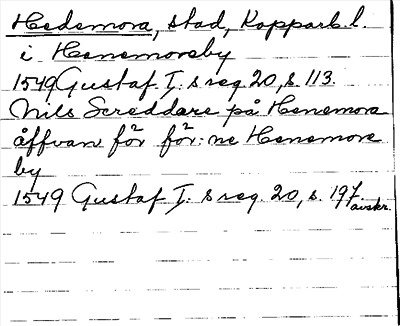 Hedemora, stad, Kopparb. l.
i Henemoreby
1549 Gustaf I:s reg 20, s. 113.
Nils Screddare på Henemora
åffvan för för:ne Henemore
by
1549 Gustaf I:s reg. 20, s. 197.
avskr.